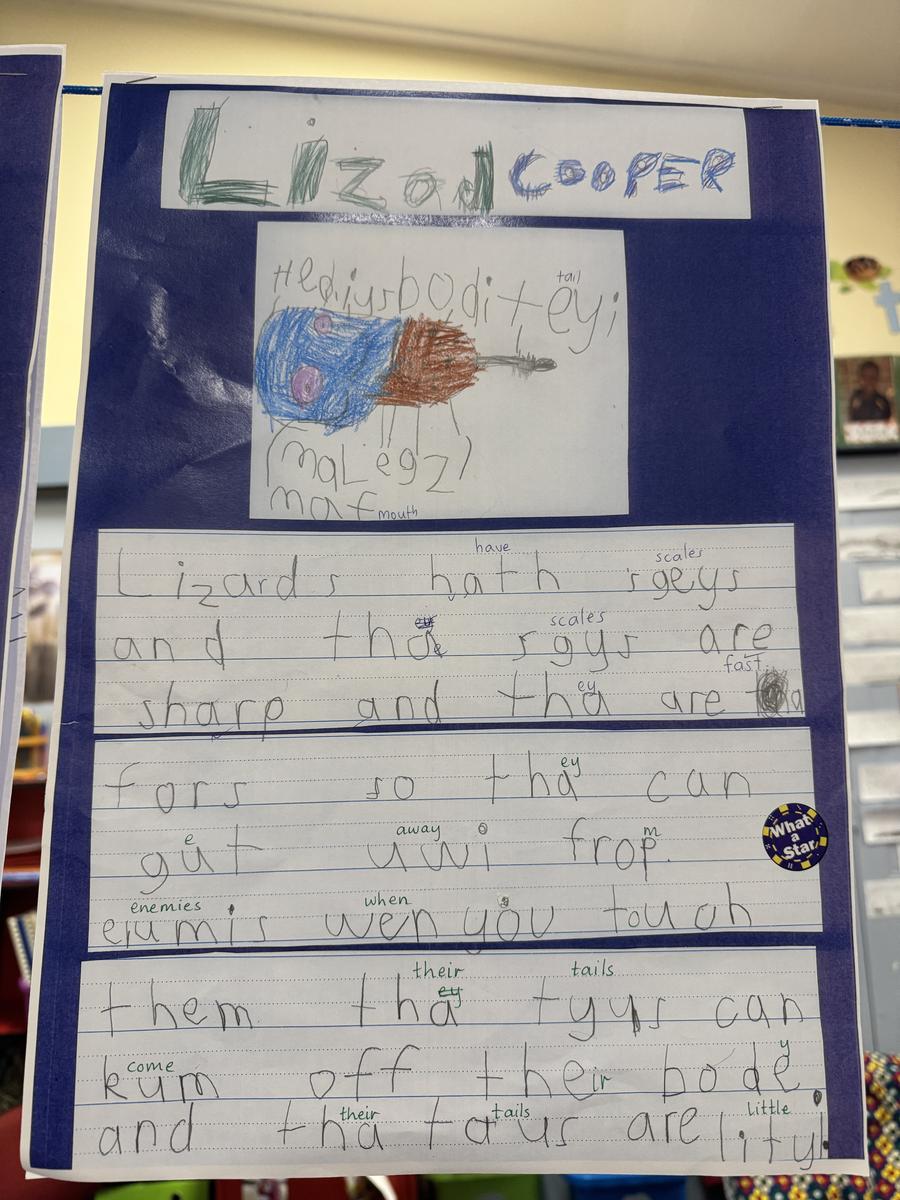 Lizad COOPER
tail
Hediysboditeyi
(maLegz)
maf mouth
have scales
Lizards hath sgeys
scales
and tha sgys are
ey fast
sharp and tha are
ey
fors so tha can
e away m
gut uwi frop.
enemies when
enumis wen you touch
their tails
ey
them tha tyys can
come y
kum off their bode
their tails little
and tha taus are lityl.
What a Star